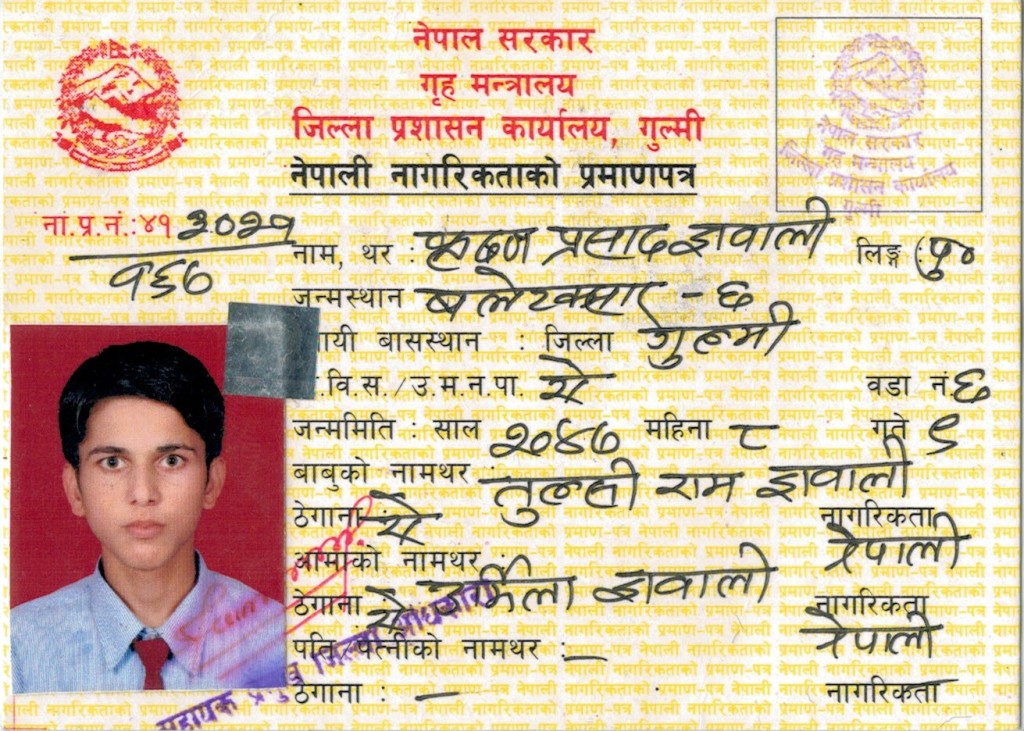 नेपाल सरकार
गृह मन्त्रालय
जिल्ला प्रशासन कार्यालय, गुल्मी
नेपाली नागरिकताको प्रमाणपत्र
नेपाल सरकार
गृह मन्त्रालय
जिल्ला प्रशासन कार्यालय
गुल्मी
ना.प्र.नं.:४१ ३०२१
१६७
नाम, थर : प्रसाद ज्ञवाली लिङ्ग : पु०
जन्मस्थान - ६
ायी बासस्थान : जिल्ला गुल्मी
.वि.स./उ.म.न.पा. ऐ वडा नं ६
जन्ममिति : साल २०४७ महिना ८ गते ९
बाबुको नामथर : तुल्सी राम ज्ञवाली
ठेगाना : ऐ नागरिकता नेपाली
आमाको नामथर : उर्मिला ज्ञवाली
ठेगाना ऐ नागरिकता नेपाली
पति/पत्नीको नामथर : -
ठेगाना : - नागरिकता
सहायक प्रमुख जिल्ला अधिकारी